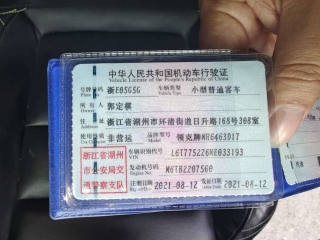 中华人民共和国机动车行驶证
Vehicle License of the People's Republic of China
号牌号码 浙E05G5G 车辆类型 小型普通客车
Plate No. Vehicle Type
所有人 郭定棋
Owner
住址 浙江省湖州市环渚街道日升路168号308室
Address
使用性质 非营运 品牌型号 领克牌MR6463D17
Use Character Model
浙江省湖州
市公安局交
通警察支队
车辆识别代号 L6T7752Z6ME033193
VIN
发动机号码 M6TBZ207560
Engine No.
注册日期 2021-08-12 发证日期 2021-08-12